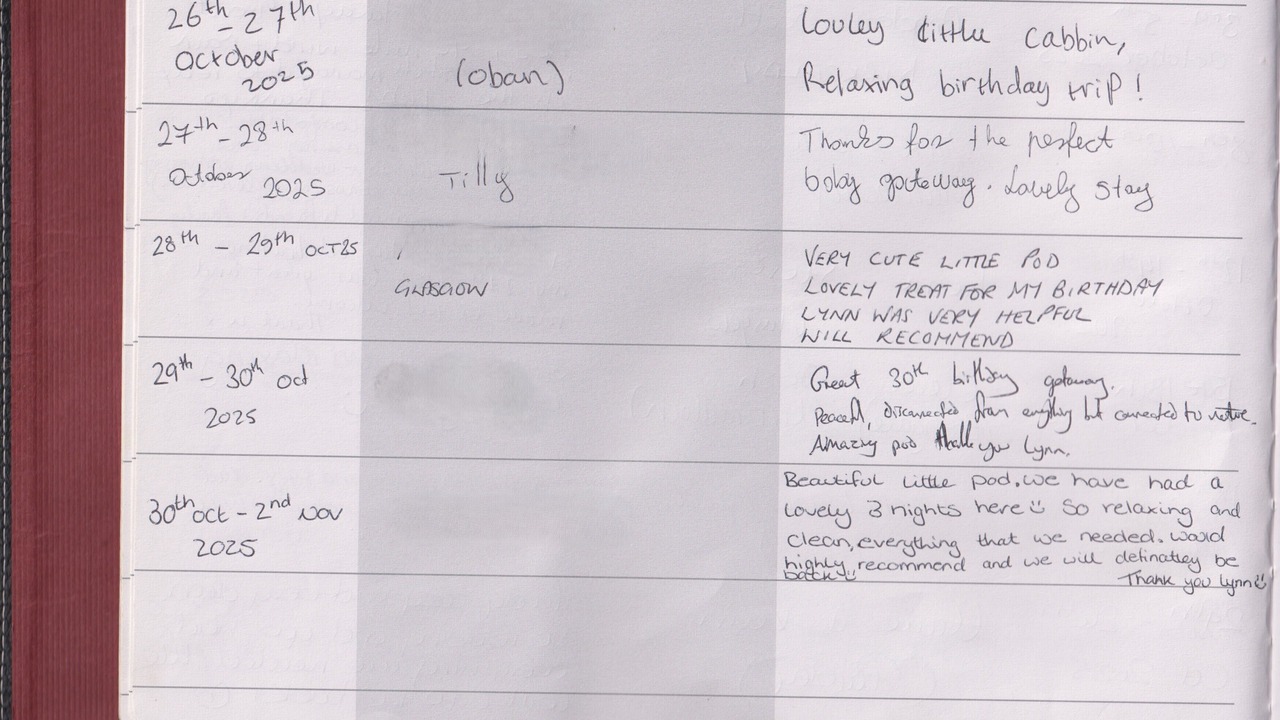 26th - 27th
October
2025
(oban)
Louley little cabbin,
Relaxing birthday trip!
27th - 28th
October 2025
Tilly
Thanks for the perfect
baby gateway. Lovely stay
28th - 29th OCT25
GLASGOW
VERY CUTE LITTLE POD
LOVELY TREAT FOR MY BIRTHDAY
LYNN WAS VERY HELPFUL
WILL RECOMMEND
29th - 30th Oct
2025
Great 30th birthday getaway.
Peaceful, disconnected from everything but connected to nature.
Amazing pod thank you Lynn.
30th oct - 2nd Nov
2025
Beautiful little pod, we have had a
lovely 3 nights here☺ So relaxing and
clean, everything that we needed. Would
highly recommend and we will definatley be
back☺
Thank you Lynn☺